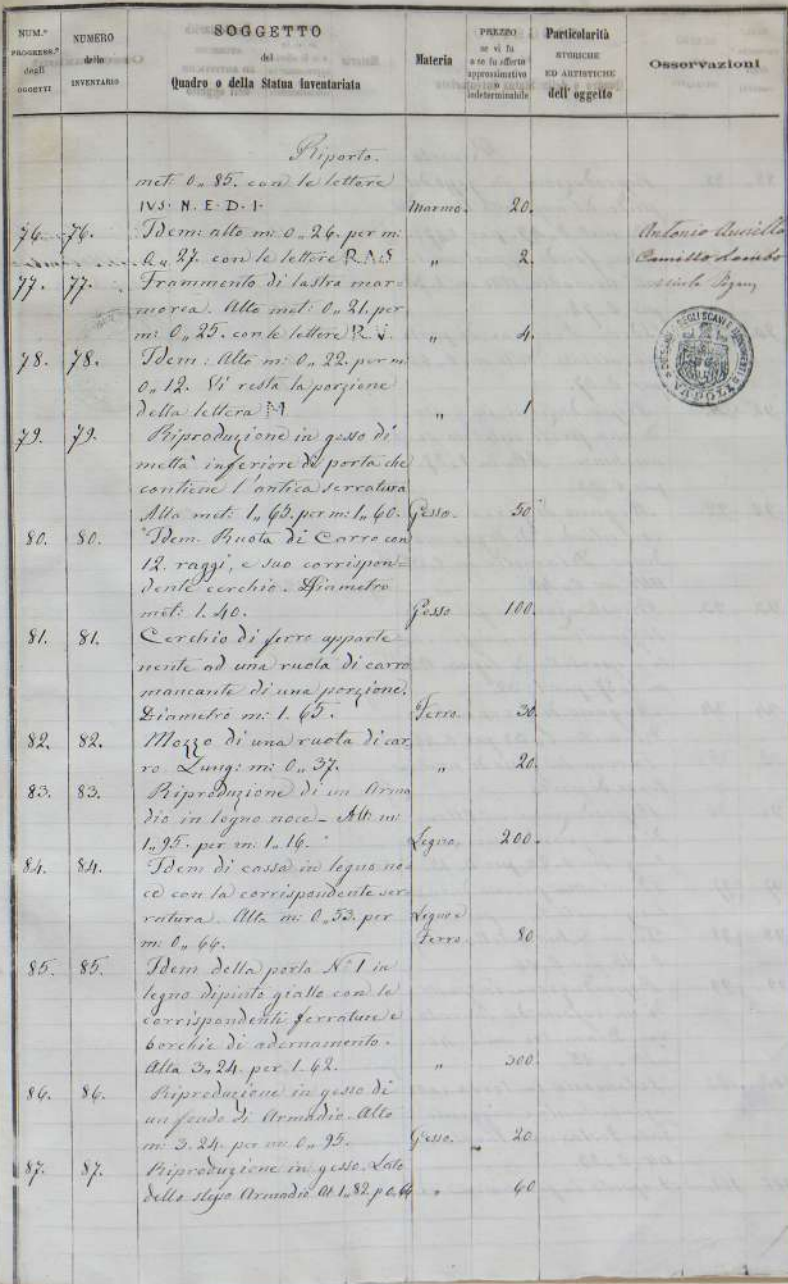 NUM.° PROGRESS.° degli OGGETTI
NUMERO dello INVENTARIO
SOGGETTO
del
Quadro o della Statua inventariata
Materia
PREZZO se vi fu o se fu offerto approssimativo o indeterminabile
Particolarità STORICHE ED ARTISTICHE dell' oggetto
Osservazioni
Riporto.
met: 0,,85. con le lettere
IVS. N. E. D. I. Marmo. 20.
76. 76. Idem: alto m: 0,,26. per m:
0,,27. con le lettere R.A.S " 2.
Antonio
Camillo
77. 77. Frammento di lastra mar-
morea. Alto met: 0,,21. per
m: 0,,25. con le lettere R.V. " 4.
78. 78. Idem: Alto m: 0,,22. per m:
0,,12. Vi resta la porzione
della lettera M " 1
NAPOLI
79. 79. Riproduzione in gesso di
mettà inferiore di porta che
contiene l'antica serratura
Alta met: 1,,65. per m: 1,,60. Gesso. 50
80. 80. Idem. Ruota di Carro con
12. raggi, e suo corrispon=
dente cerchio. Diametro
met: 1.40. Gesso 100.
81. 81. Cerchio di ferro apparte
nente ad una ruota di carro
mancante di una porzione.
Diametro m: 1.65. Ferro. 30.
82. 82. Mozzo di una ruota di car,
ro. Lung: m: 0,,37. " 20.
83. 83. Riproduzione di un Arma
dio in legno noce - Alt: m:
1,,95. per m: 1,,16. Legno. 200.
84. 84. Idem di cassa in legno no-
ce con la corrispondente ser-
ratura. Alta m: 0,,53. per Legno e
m: 0,,66. Ferro. 80
85. 85. Idem della porta N° 1 in
legno dipinto giallo con le
corrispondenti ferrature e
borchie di adornamento.
Alta 3,,24. per 1.62. " 300.
86. 86. Riproduzione in gesso di
un fondo di Armadio. Alto
m: 3.24. per m: 0,,95. Gesso. 20.
87. 87. Riproduzione in gesso. Lato
dello stesso Armadio At. 1,,82. p 0,,64 " 60